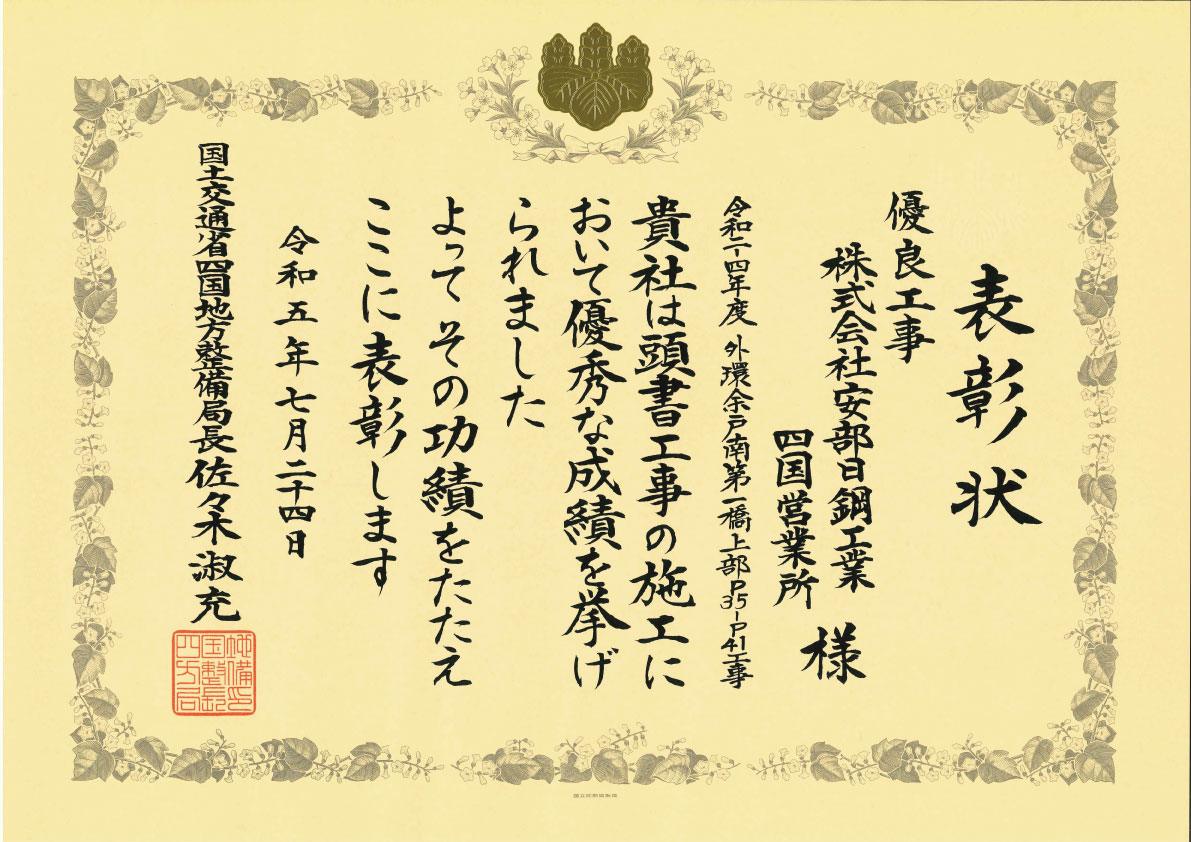 表彰状
優良工事
株式会社安部日鋼工業
四国営業所
様
令和二-四年度 外環余戸南第一橋上部P35-P41工事
貴社は頭書工事の施工に
おいて優秀な成績を挙げ
られました
よってその功績をたたえ
ここに表彰します
令和五年七月二十四日
国土交通省四国地方整備局長佐々木淑充